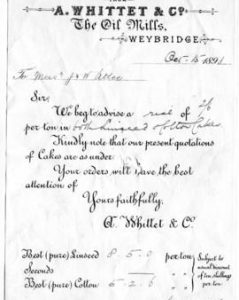 A. WHITTET & Co.
The Oil Mills,
WEYBRIDGE,
Oct 15 1891
To Mess
Sir,
We beg to advise a rise of 2/6
per ton in both Linseed & Cotton Cakes
Kindly note that our present quotations
of Cakes are as under.
Your orders will have the best
attention of
Yours faithfully,
A. Whittet & Co.
Best (pure) Linseed 8.5.0 per ton
Seconds
Best (pure) Cotton 5.2.6
Subject to
usual discount
of ten shillings
per ton.